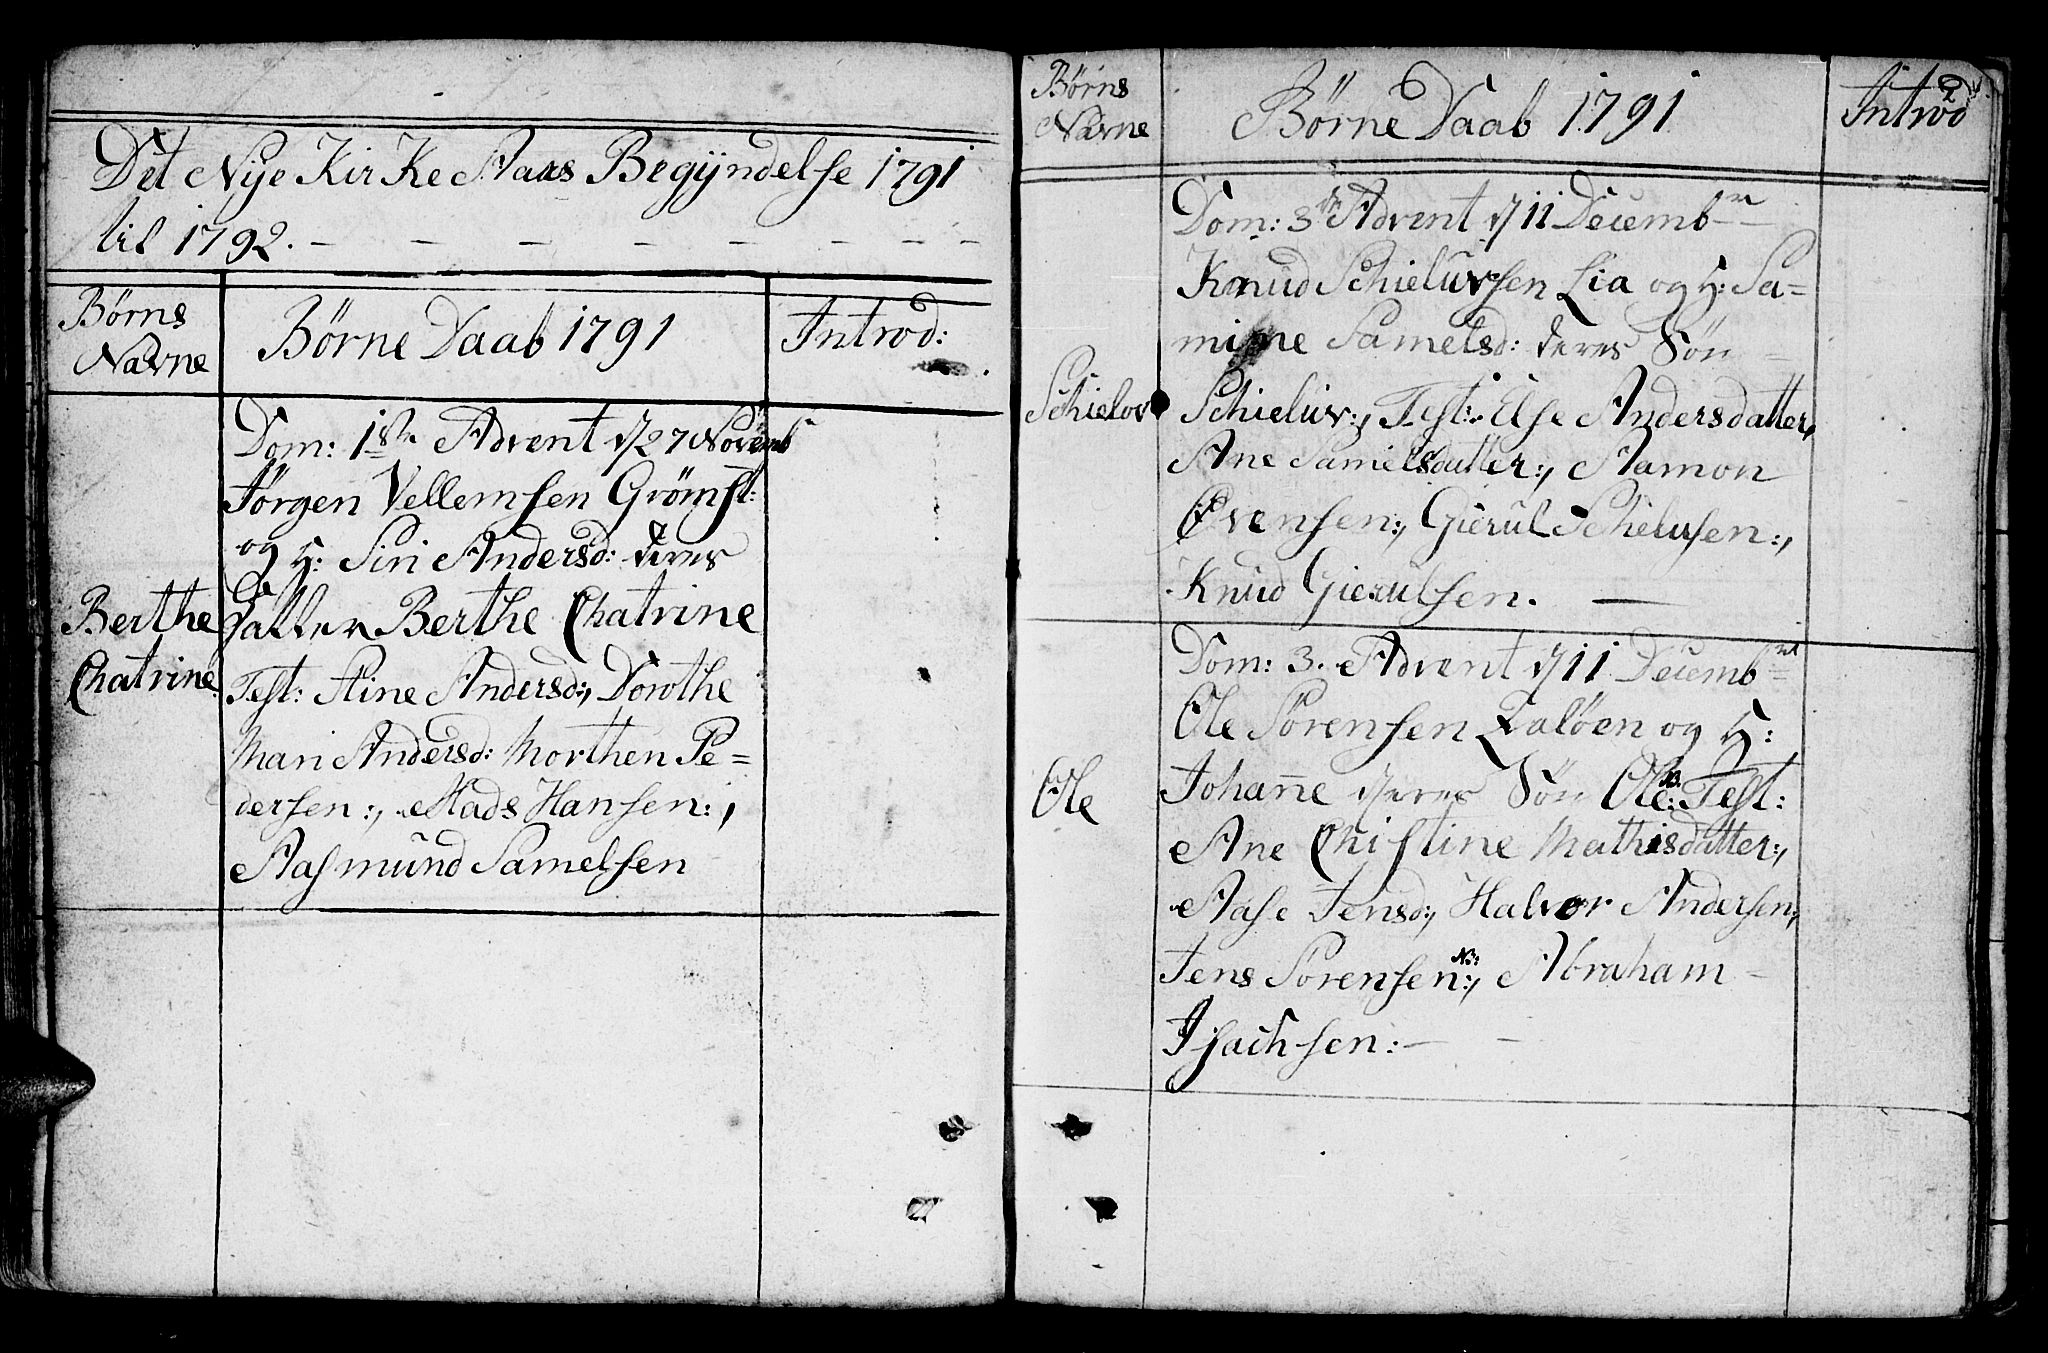 Det Nye KirKe Aars Begÿndelse 1791
til 1792. – – – – – – – –
Børns
Navne
Børne Daab 1791
Introd:
Dom: 1ste Advent d 27 Novemb
Jörgen Vellemsen Grömst:
og H: Siri Andersd: deres
Berthe
Datter Berthe Chatrine
Chatrine
Test: Stine Andersd:, Dorothe
Mari Andersd: Morthen Pe=
dersen:, Mads Hansen:,
Aasmund Samelsen
Børns
Navne
Børne Daab 1791
Introd
2
Dom: 3de Advent d 11 Decembr
Knud Schieluvsen Lia og H: Sa=
mine Samelsd: deres Sön
Schielov
Schieluv:, Test: Else Andersdatter,
Ane Samelsdatter:, Aamon
Evensen:, Gierul Schieluvsen:,
Knud Gierulsen. —
Dom: 3. Advent d 11 Decembr
Ole Sörensen Zalöen og H:
Ole
Johan̄e deres Sön Ole: Test:
Ane Chistine Mathisdatter:,
Aase Jensd:, Halvor Andersen:,
Jens Sörensen:, Abraham –
N:
Isachsen: – –